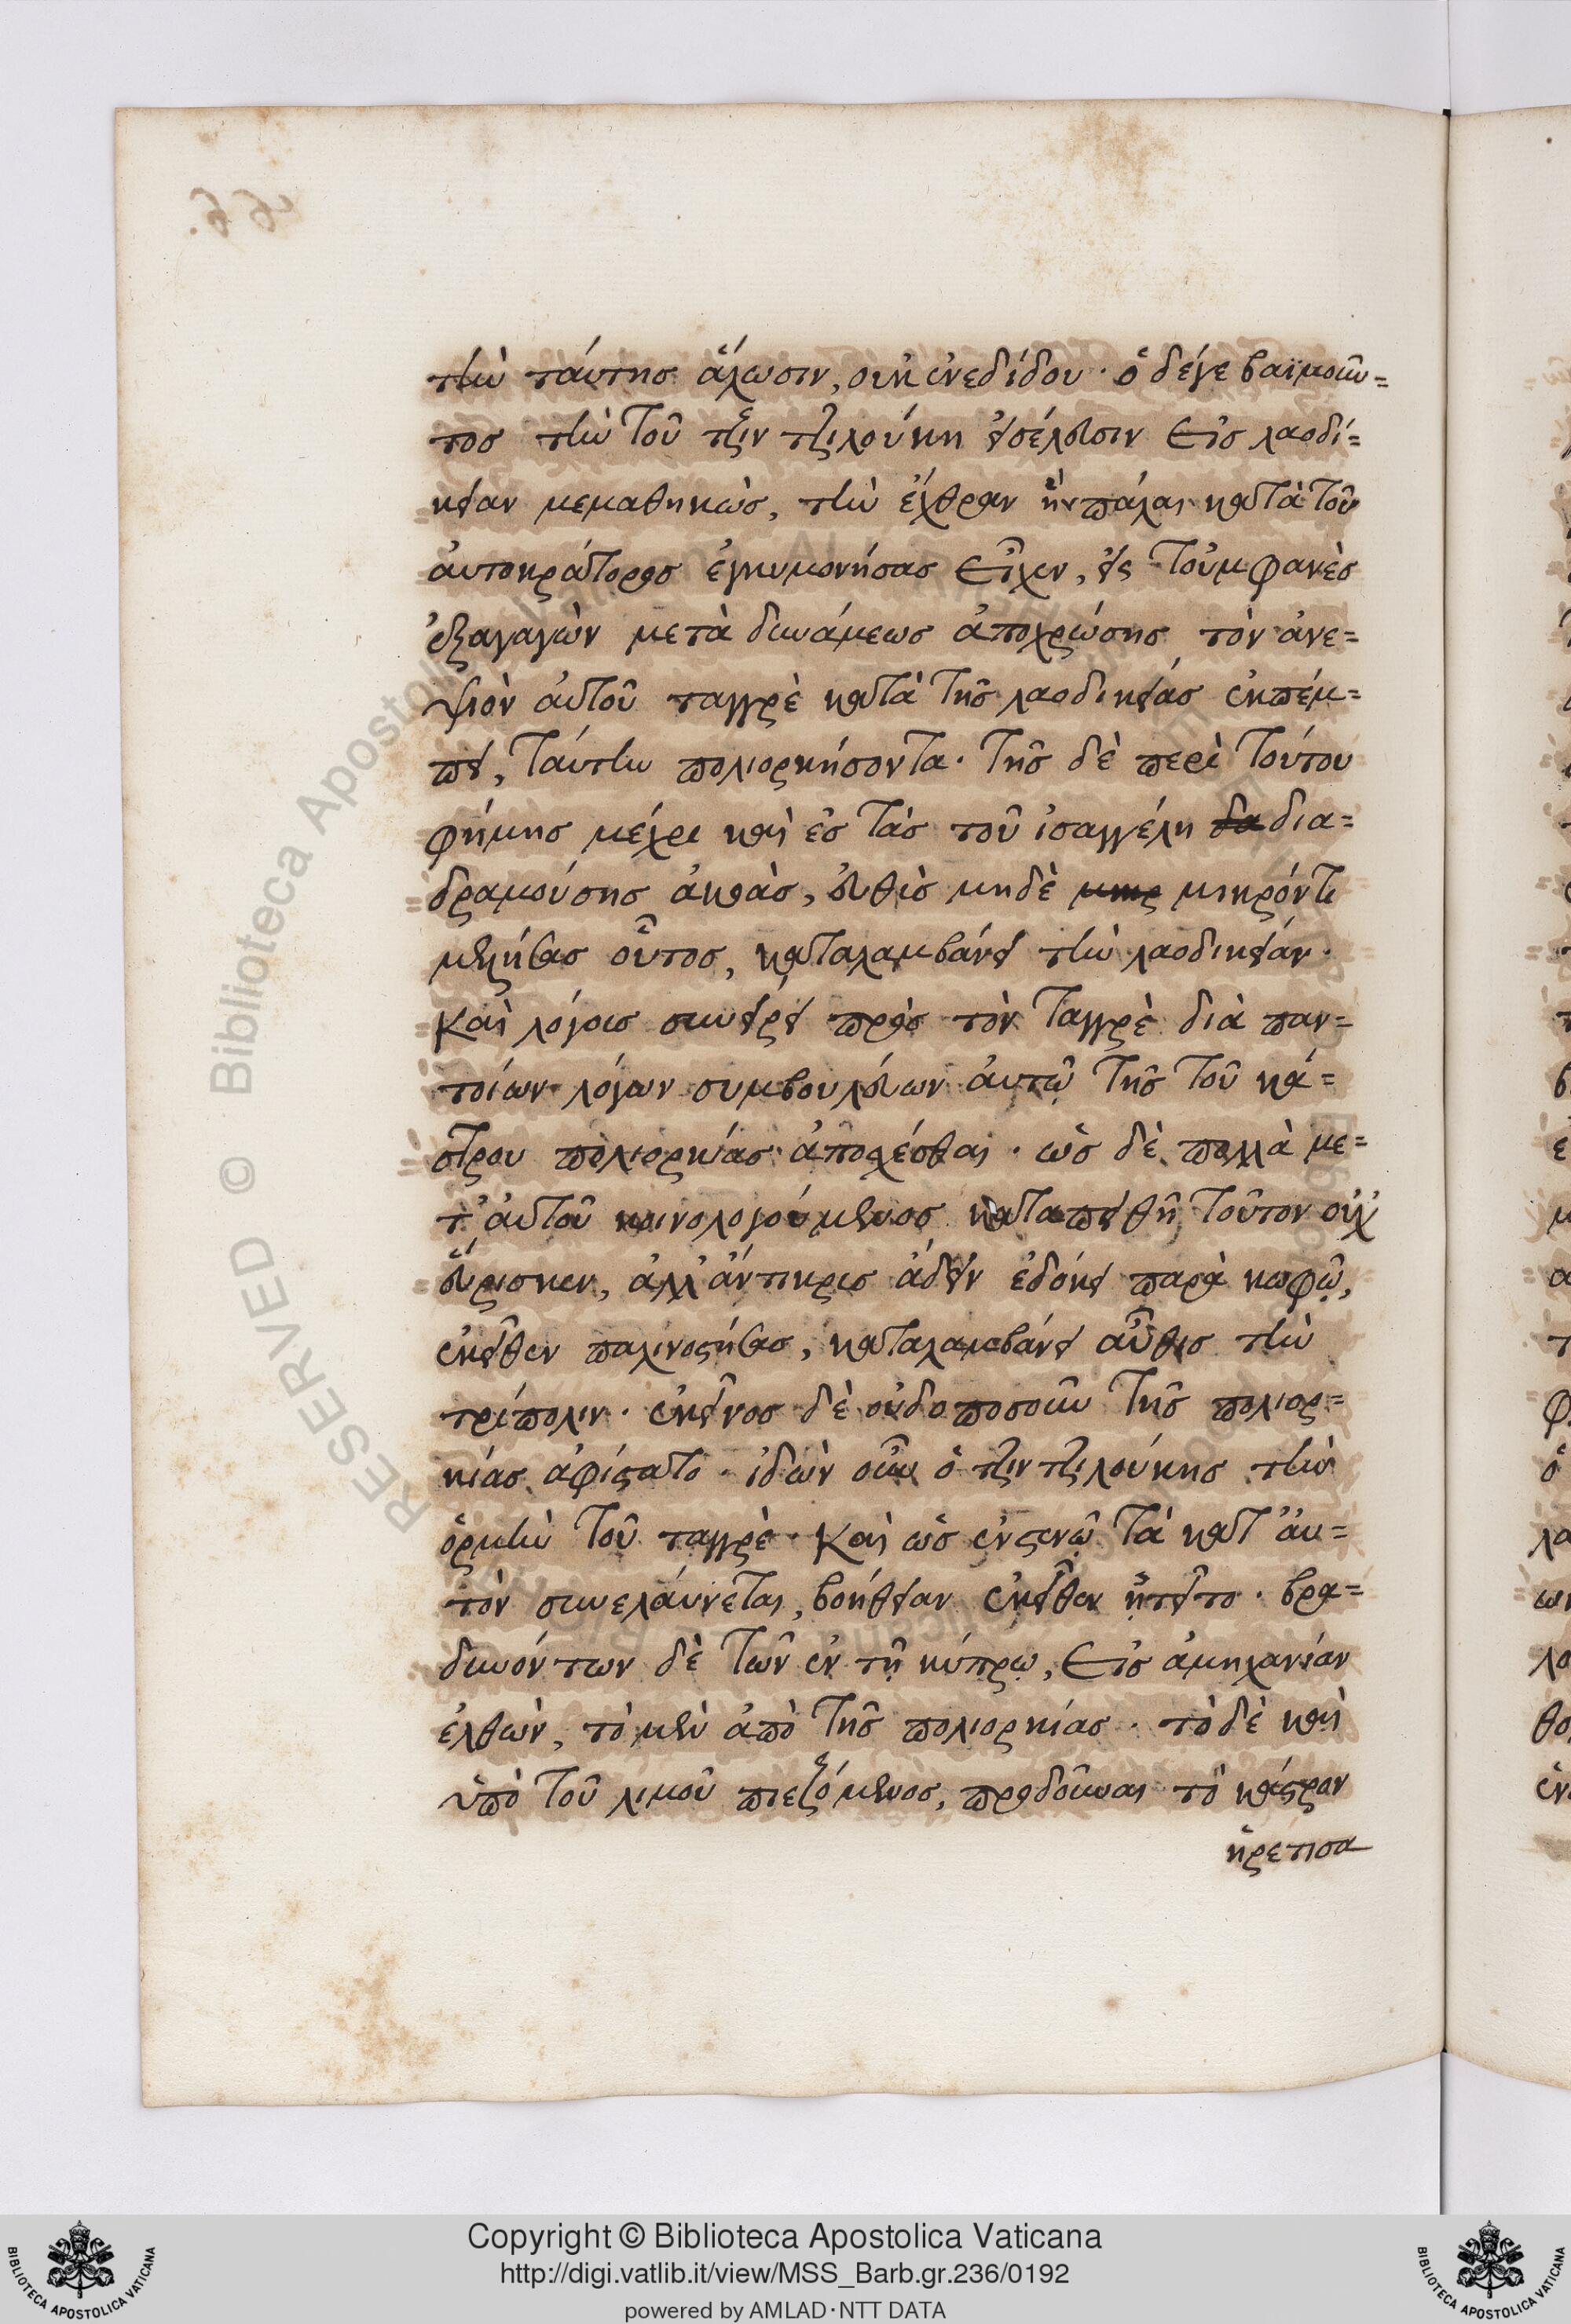 τὴν ταύτης ἅλωσιν, οὐκ ἐνεδίδου· ὁ δέγε βαϊμοῦν=
τος τὴν τοῦ τζιντζιλούκη εἰσέλευσιν εἰς λαοδί=
κειαν μεμαθηκὼς, τὴν ἔχθραν ἣν πάλαι κατὰ τοῦ
αὐτοκράτορος ἐγκυμονήσας εἶχεν, εἰς τοὐμφανὲς
ἐξαγαγὼν μετὰ δυνάμεως ἀποχρώσης τὸν ἀνε=
ψιὸν αὐτοῦ ταγγρὲ κατὰ τῆς λαοδικείας ἐκπέμ=
πει, ταύτην πολιορκήσοντα· τῆς δὲ περὶ τούτου
φήμης μέχρι καὶ ἐς τὰς τοῦ ἰσαγγέλη δια=
δραμούσης ἀκοὰς, εὐθὺς μηδὲ μικρόντι
μελλήσας οὗτος, καταλαμβάνει τὴν λαοδικείαν·
καὶ λόγοις συνείρει πρὸς τὸν ταγγρὲ διὰ παν=
τοίων λόγων συμβουλεύων αὐτῶ τῆς τοῦ κά=
στρου πολιορκίας ἀποσχέσθαι· ὡς δὲ πολλὰ με=
τ' αὐτοῦ κοινολογούμενος καταπειθῆ τοῦτον οὐχ
εὕρισκεν, ἀλλ' ἄντικρις ἄδειν ἐδόκει παρὰ κωφῶ,
ἐκεῖθεν παλινοστήσας, καταλαμβάνει αὖθις τὴν
τρίπολιν· ἐκεῖνος δὲ οὐδοποσοῦν τῆς πολιορ=
κίας ἀφίστατο· ἰδὼν οὖν ὁ τζιντζιλούκης τὴν
ὁρμὴν τοῦ ταγγρὲ· καὶ ὡς ἐν στενῶ τὰ κατ' αὐ=
τὸν συνελαύνεται, βοήθειαν ἐκεῖθεν ἠτεῖτο· βρα=
δυνόντων δὲ τῶν ἐν τῆ κύπρω, εἰς ἀμηχανίαν
ἐλθὼν, τὸ μὲν ἀπὸ τῆς πολιορκίας· τὸ δὲ καὶ
ὑπὸ τοῦ λιμοῦ πιεζόμενος, προδοῦναι τὸ κάστρον
ἡρετισα
Copyright © Biblioteca Apostolica Vaticana
http://digi.vatlib.it/view/MSS_Barb.gr.236/0192
powered by AMLAD·NTT DATA